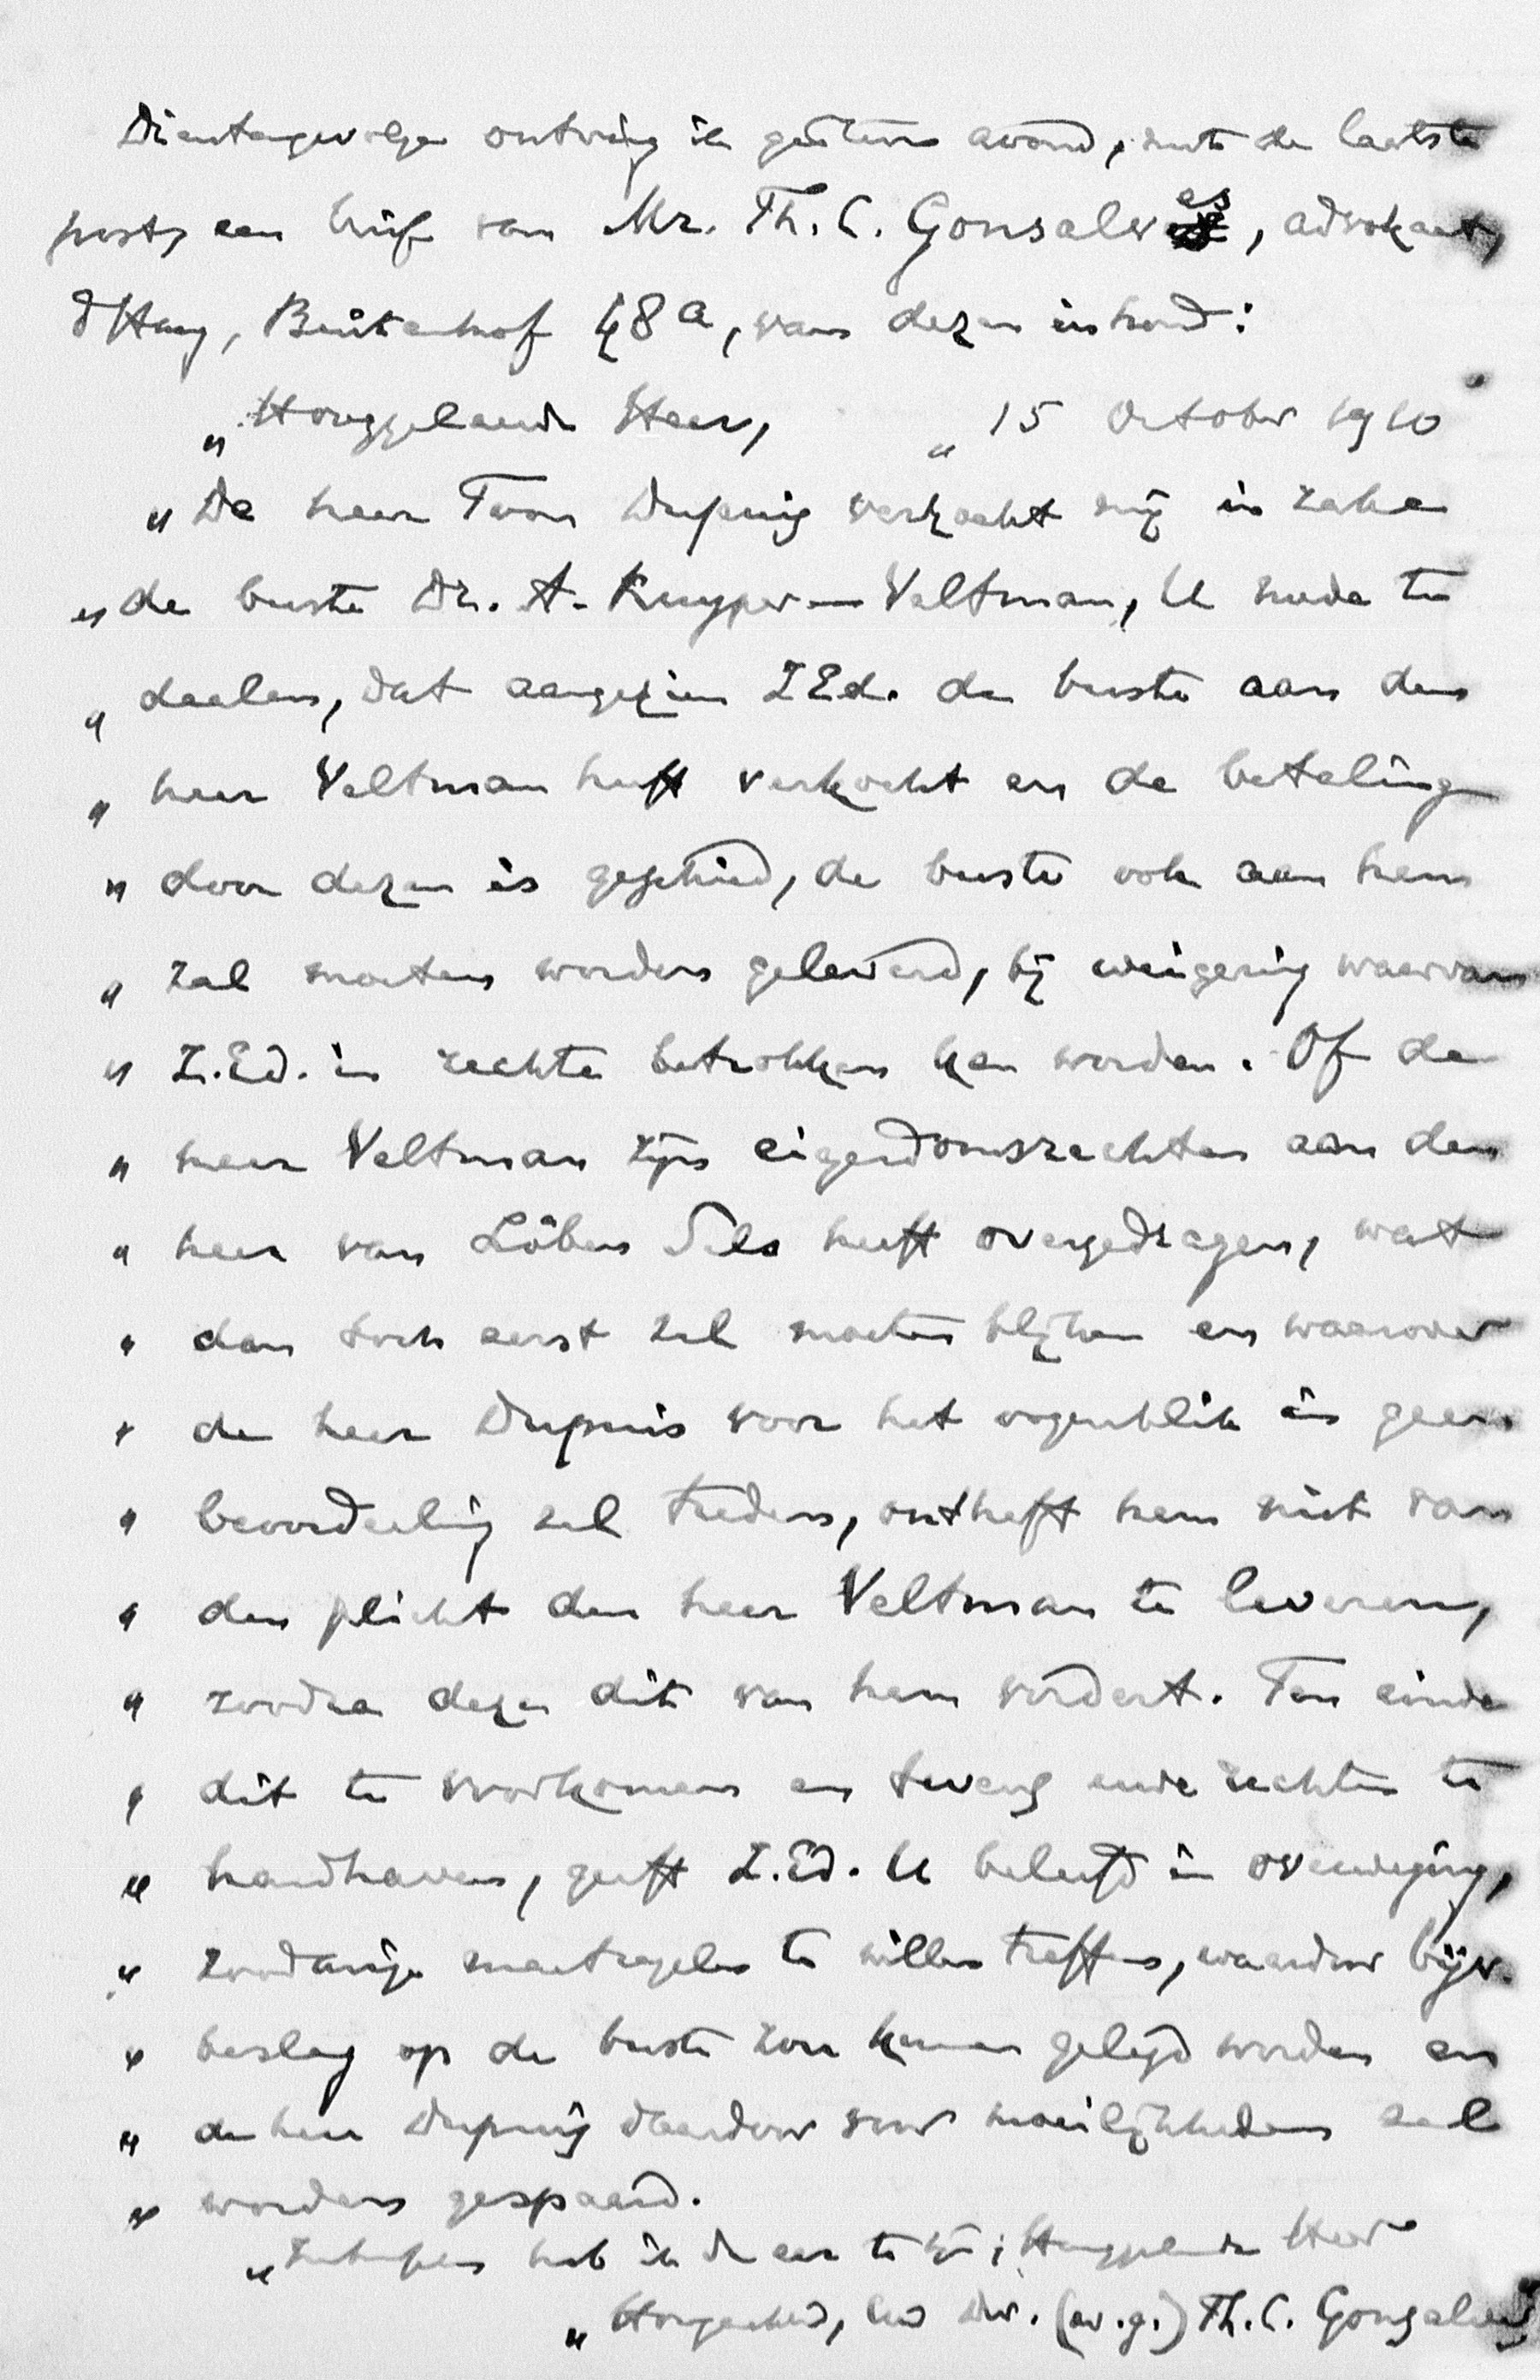 Dientengevolge ontving ik gisteren avond, met de laatste
post, een brief van Mr. Th. C. Gonsalves, advokaat,
d Haag, Buitenhof 48a, van dezen inhoud:
„Hooggeleerde Heer, „15 October 1910
„De heer Toon Dupuis verzocht mij in zake
„de buste Dr. A. Kuyper – Veltman, U mede te
„deelen, dat aangezien ZEd. de buste aan den
„heer Veltman heeft verkocht en de betaling
„door dezen is geschied, de buste ook aan hem
„zal moeten worden geleverd, bij weigering waarvan
„Z.Ed. in rechte betrokken kan worden. Of de
„heer Veltman zijn eigendomsrechten aan den
„heer van Löben Sels heeft overgedragen, wat
„dan toch eerst zal moeten blijken en waarover
„de heer Dupuis voor het oogenblik in geen
„beoordeeling zal treden, ontheft hem niet van
„den plicht den heer Veltman te leveren,
„zoodra deze dit van hem vordert. Ten einde
„dit te voorkomen en tevens uwe rechten te
„handhaven, geeft Z.Ed. U beleefd in overweging,
„zoodanige maatregelen te willen treffen, waardoor bijv.
„beslag op de buste zou kunnen gelegd worden en
„de heer Dupuis daardoor voor moeilijkheden zal
„worden gespaard.
„Intusschen heb ik de eer te zijn, Hooggeleerde Heer
„Hoogachtend, Uw Dw. (w.g.) Th. C. Gonsalves